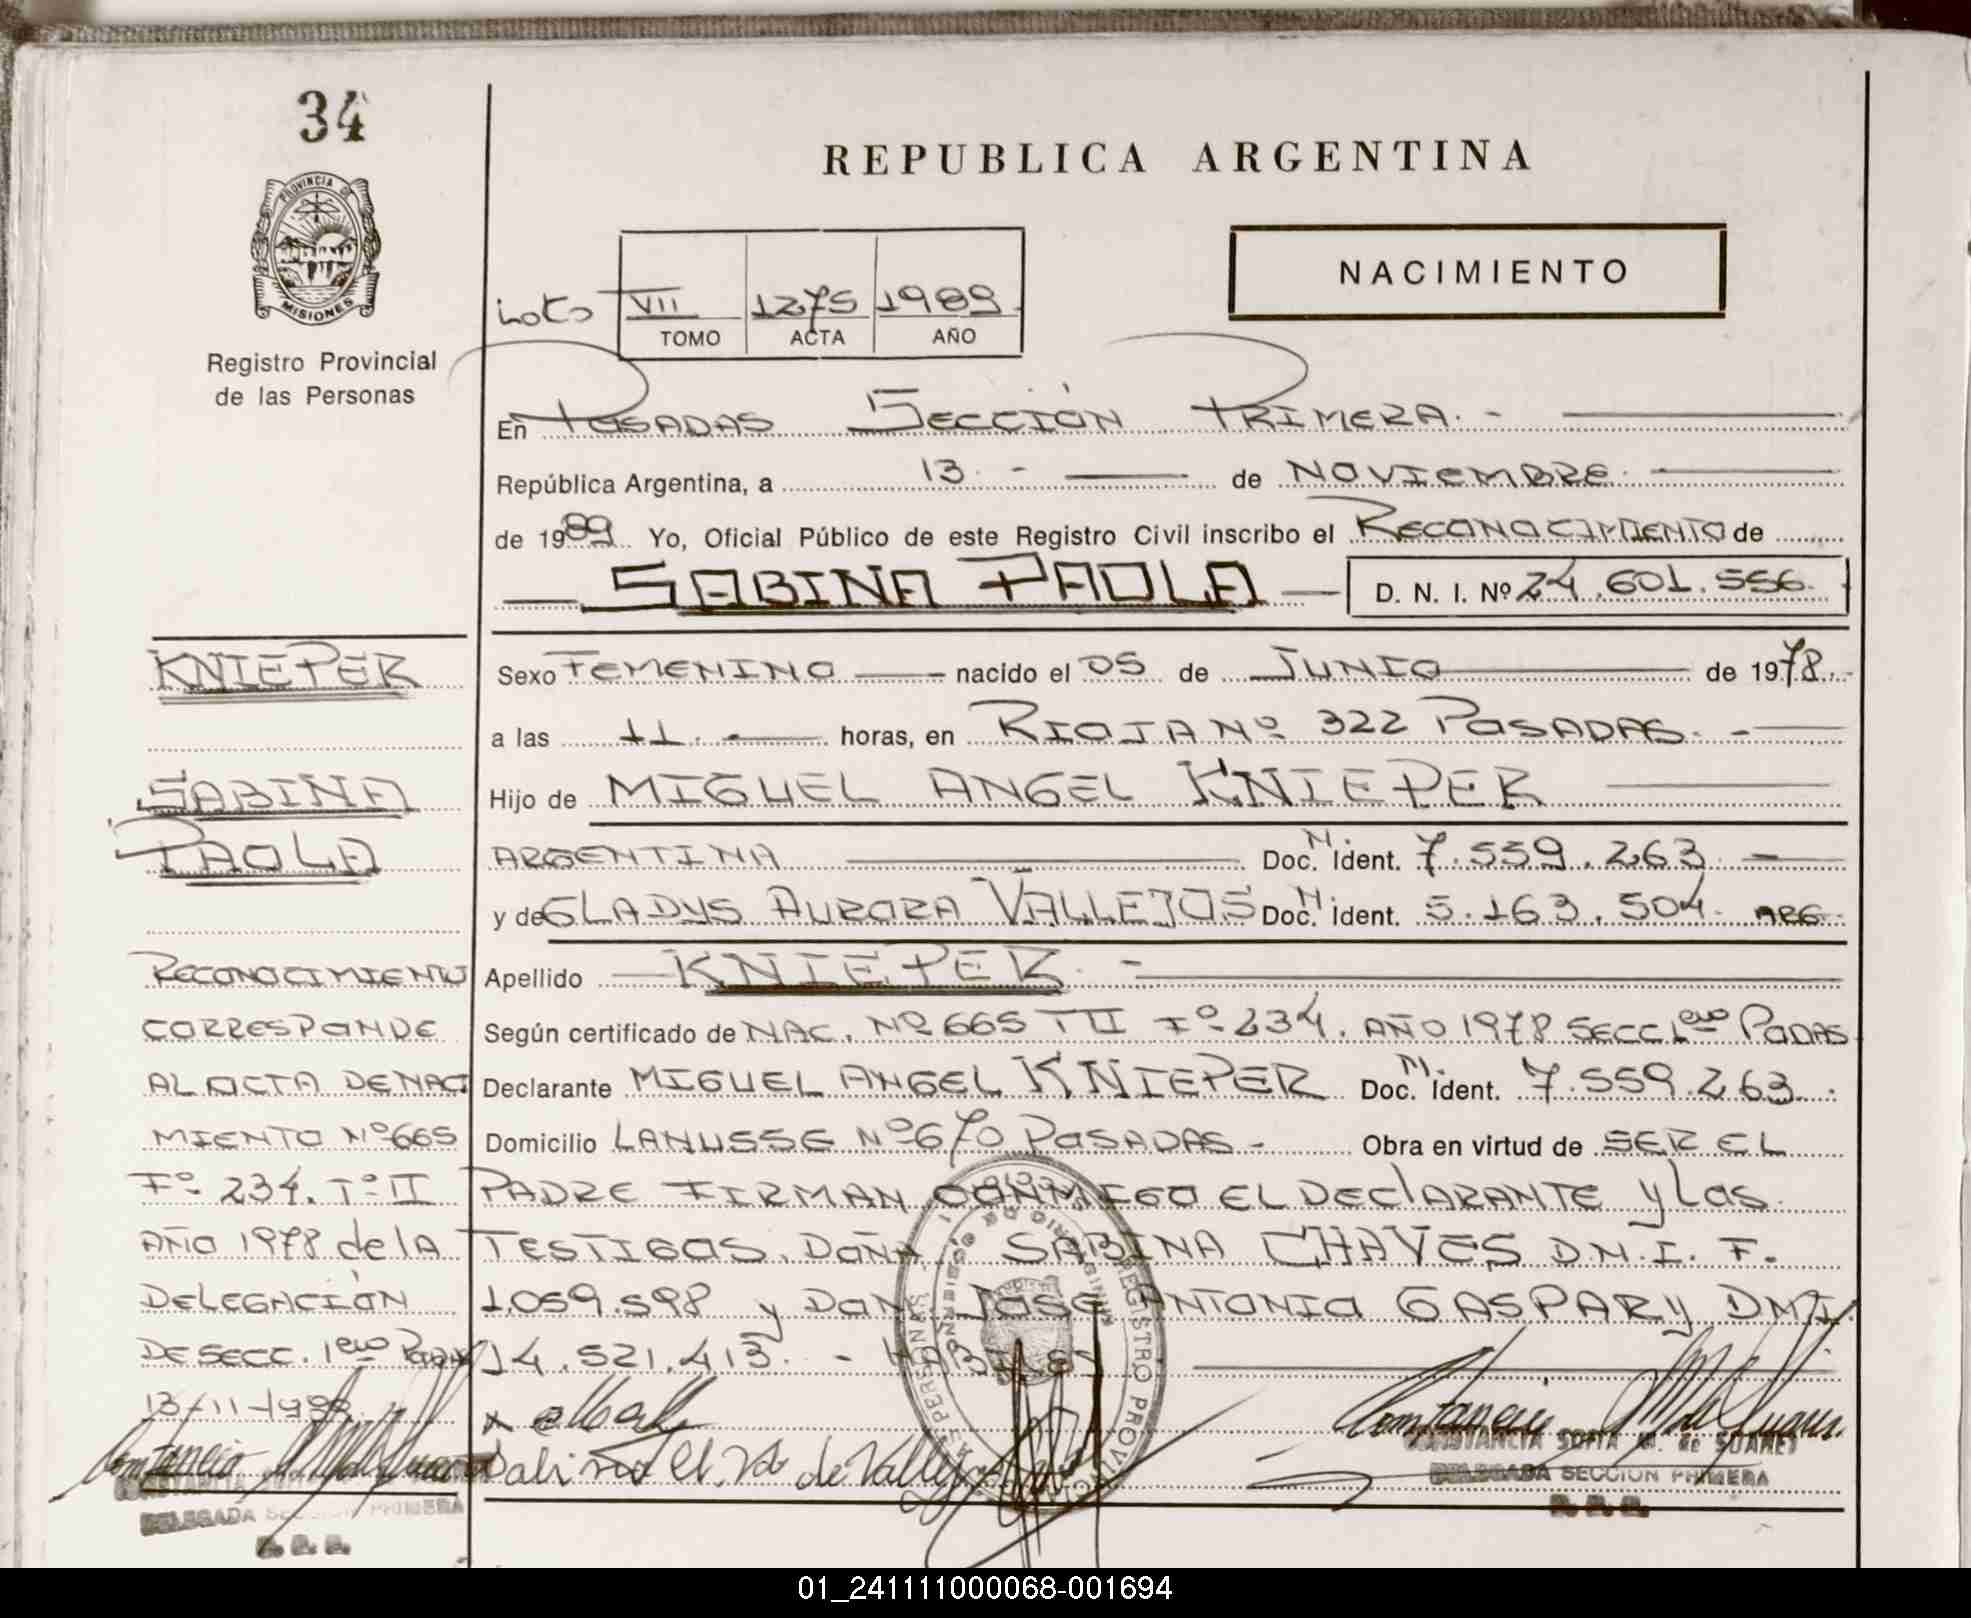 34
REPUBLICA ARGENTINA
PROVINCIA DE
MISIONES
NACIMIENTO
VII 1275 1989
TOMO ACTA AÑO
Registro Provincial
de las Personas
En POSADAS SECCIÓN PRIMERA. -
República Argentina, a 13. - de NOVIEMBRE
de 1989 Yo, Oficial Público de este Registro Civil inscribo el RECONOCIMIENTO de
SABINA PAOLA D. N. I. Nº 24.601.556
KNIEPER
SABINA
PAOLA
RECONOCIMIENTO
CORRESPONDE
AL ACTA DE NACI
MIENTO Nº 665
Fº 234. Tº II
AÑO 1978 de lA
DELEGACIÓN
DE SECC. 1era
13-11-1989
CONSTANCIA
DELEGADA SECCION PRIMERA
Sexo FEMENINO nacido el 05 de JUNIO de 1978.
a las 11. - horas, en RIOJA Nº 322 POSADAS. -
Hijo de MIGUEL ANGEL KNIEPER
ARGENTINA Doc. M. Ident. 7.559.263
y de GLADYS AURORA VALLEJOS Doc. N. Ident. 5.163.504 ARG.
Apellido KNIEPER. -
Según certificado de NAC. Nº 665 TII Fº 234. AÑO 1978 SECC 1era PDAS
Declarante MIGUEL ANGEL KNIEPER Doc. M. Ident. 7.559.263.
Domicilio LANUSSE Nº 670 POSADAS - Obra en virtud de SER EL
PADRE FIRMAN CONMIGO EL DEClARANTE y Los
TESTIGOS. DOÑA SABINA CHAVES D.N.I. F.
1.059.598 y DON JOSE ANTONIO GASPARy DNI.
14.521.413. - HABILES
Sabina el. Vda de Vallejos
REGISTRO PROVINCIAL
CONSTANCIA SOFIA M. de SUAREZ
DELEGADA SECCION PRIMERA
01_241111000068-001694